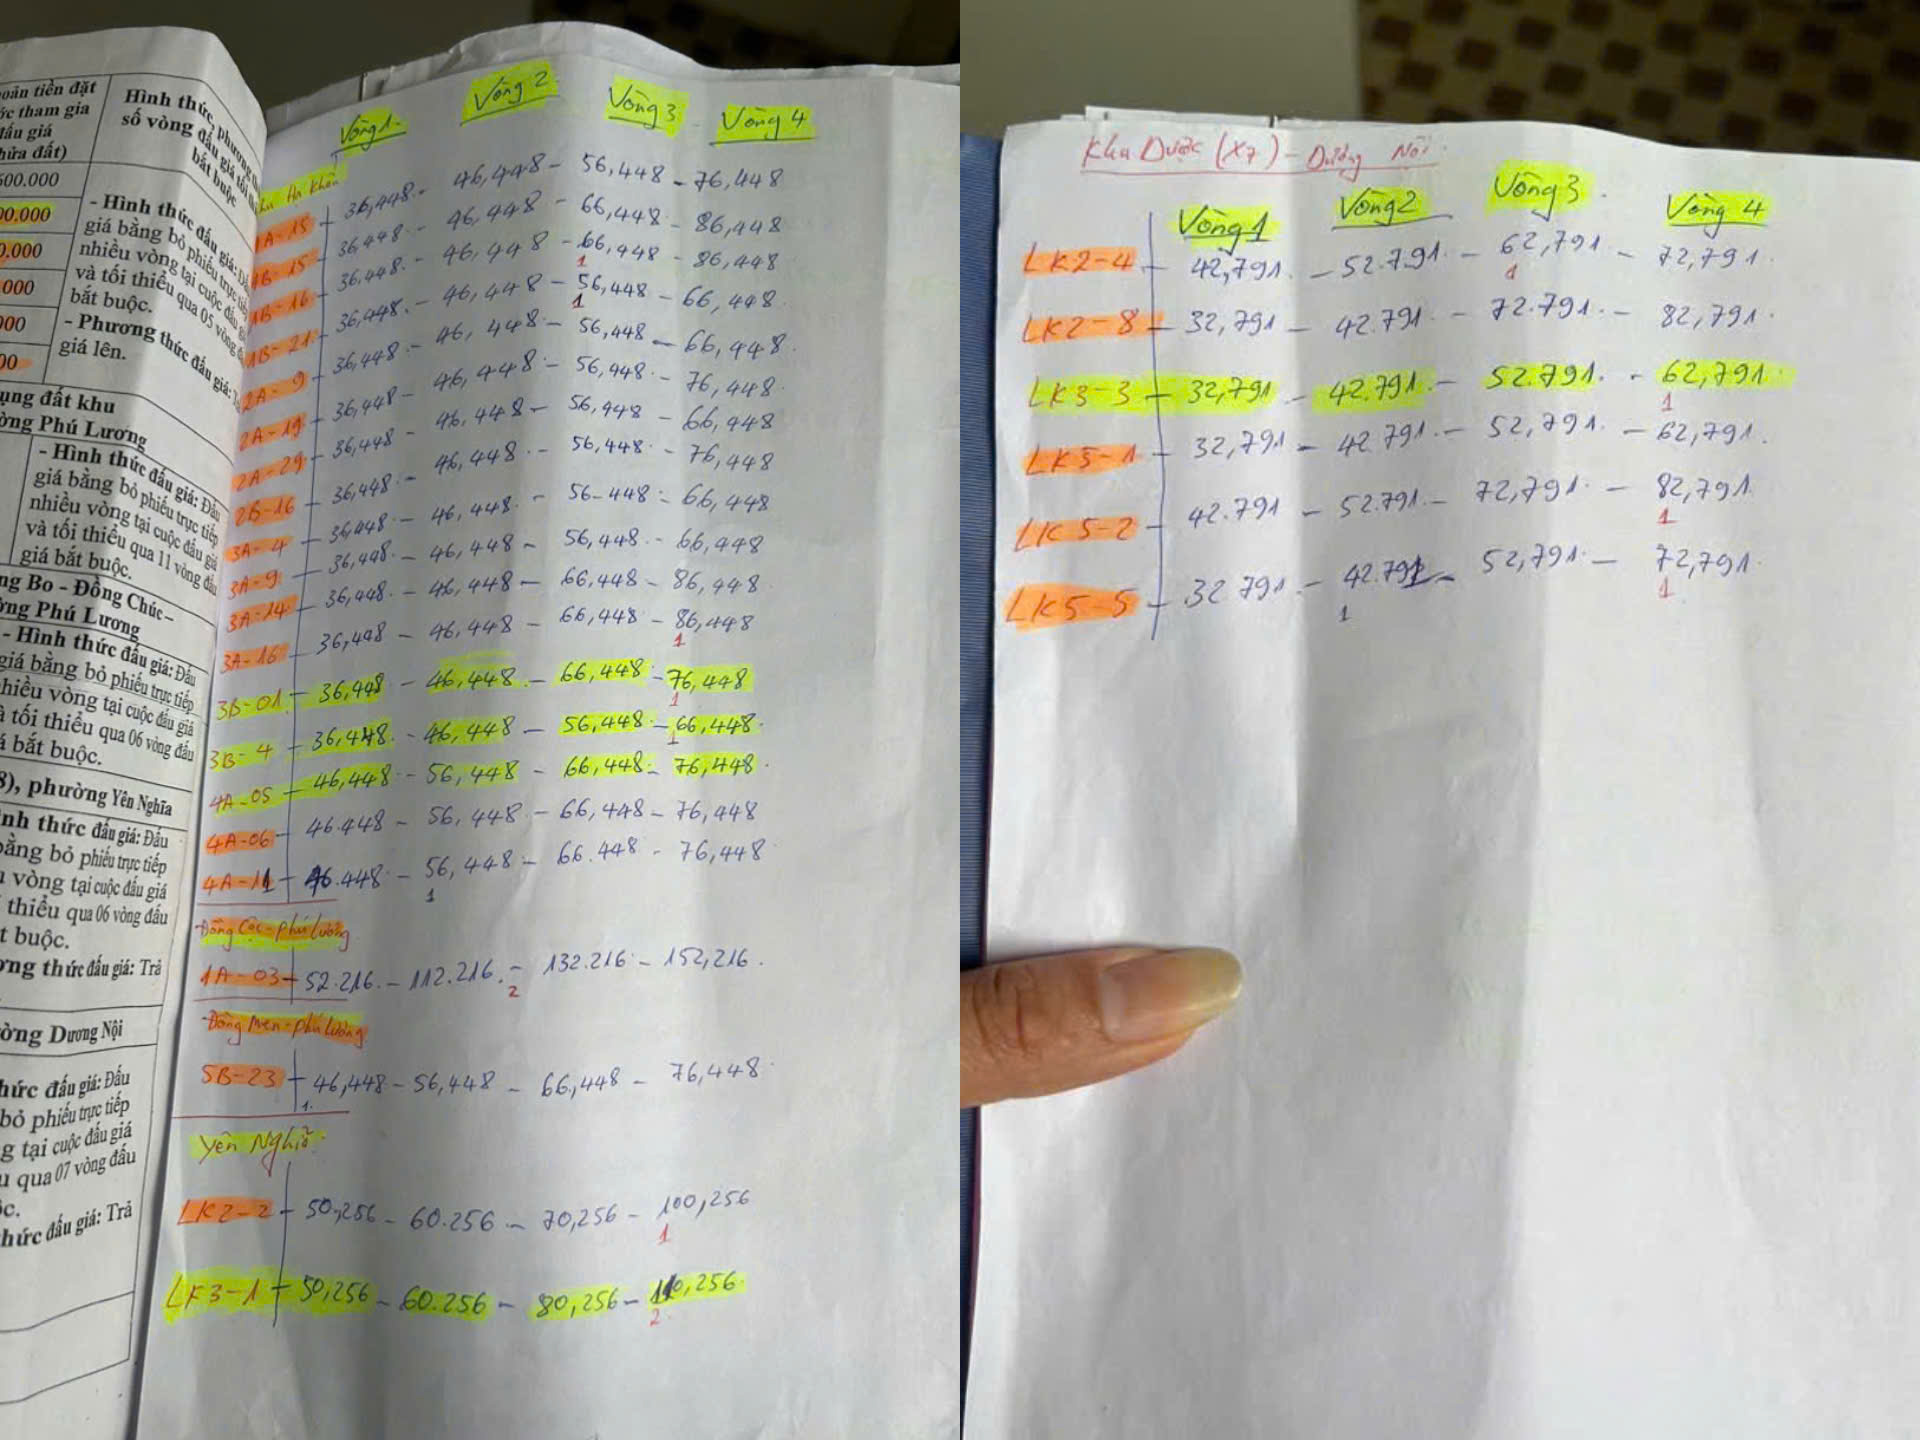 oản tiền đặt
ớc tham gia
đấu giá
hửa đất)
Hình thức, phương
số vòng đấu giá tối
bắt buộc
500.000
00.000
0.000
000
000
00
- Hình thức đấu giá: Đấu
giá bằng bỏ phiếu trực tiếp
nhiều vòng tại cuộc đấu giá
và tối thiểu qua 05 vòng đấu
bắt buộc.
- Phương thức đấu giá: Trả
giá lên.
ụng đất khu
ờng Phú Lương
- Hình thức đấu giá: Đấu
giá bằng bỏ phiếu trực tiếp
nhiều vòng tại cuộc đấu giá
và tối thiểu qua 11 vòng đấu
giá bắt buộc.
ng Bo - Đồng Chúc –
ờng Phú Lương
- Hình thức đấu giá: Đấu
giá bằng bỏ phiếu trực tiếp
hiều vòng tại cuộc đấu giá
à tối thiểu qua 06 vòng đấu
á bắt buộc.
8), phường Yên Nghĩa
ình thức đấu giá: Đấu
bằng bỏ phiếu trực tiếp
u vòng tại cuộc đấu giá
thiểu qua 06 vòng đấu
t buộc.
ơng thức đấu giá: Trả
ờng Dương Nội
hức đấu giá: Đấu
bỏ phiếu trực tiếp
g tại cuộc đấu giá
u qua 07 vòng đấu
ộc.
hức đấu giá: Trả
Vòng 1 Vòng 2 Vòng 3 Vòng 4
Khu Hạ Khâu
1A-15 36,448 - 46,448 - 56,448 - 76,448
1B-15 36,448 - 46,448 - 66,448 - 86,448
1B-16 36,448 - 46,448 - 66,448 - 86,448
1
1B-21 36,448 - 46,448 - 56,448 - 66,448
1
2A-9 36,448 - 46,448 - 56,448 - 66,448
2A-19 36,448 - 46,448 - 56,448 - 76,448
2A-29 36,448 - 46,448 - 56,448 - 66,448
2B-16 36,448 - 46,448 - 56,448 - 76,448
3A-4 36,448 - 46,448 - 56-448 - 66,448
3A-9 36,448 - 46,448 - 56,448 - 66,448
3A-14 36,448 - 46,448 - 66,448 - 86,448
3A-16 36,448 - 46,448 - 66,448 - 86,448
1
3B-01 36,448 - 46,448 - 66,448 - 76,448
1
3B-4 36,448 - 46,448 - 56,448 - 66,448
1
4A-05 46,448 - 56,448 - 66,448 - 76,448
4A-06 46.448 - 56,448 - 66,448 - 76,448
4A-11 46.448 - 56,448 - 66.448 - 76,448
1
Đồng Cộc-phú Lương
1A-03 52.216 - 112.216 - 132.216 - 152,216
2
Đồng Men-phú Lương
5B-23 46,448 - 56,448 - 66,448 - 76,448
1
Yên Nghĩa
LK2-2 50,256 - 60.256 - 70,256 - 100,256
1
LK3-1 50,256 - 60.256 - 80,256 - 110,256
2
Khu Dược (X7) - Dương Nội
Vòng 1 Vòng 2 Vòng 3 Vòng 4
LK2-4 42,791 - 52.791 - 62,791 - 72,791
1
LK2-8 32,791 - 42.791 - 72.791 - 82,791
LK3-3 32,791 - 42.791 - 52.791 - 62,791
1
LK5-1 32,791 - 42.791 - 52,791 - 62,791
LK5-2 42.791 - 52.791 - 72,791 - 82,791
1
LK5-5 32.791 - 42.791 - 52,791 - 72,791
1 1